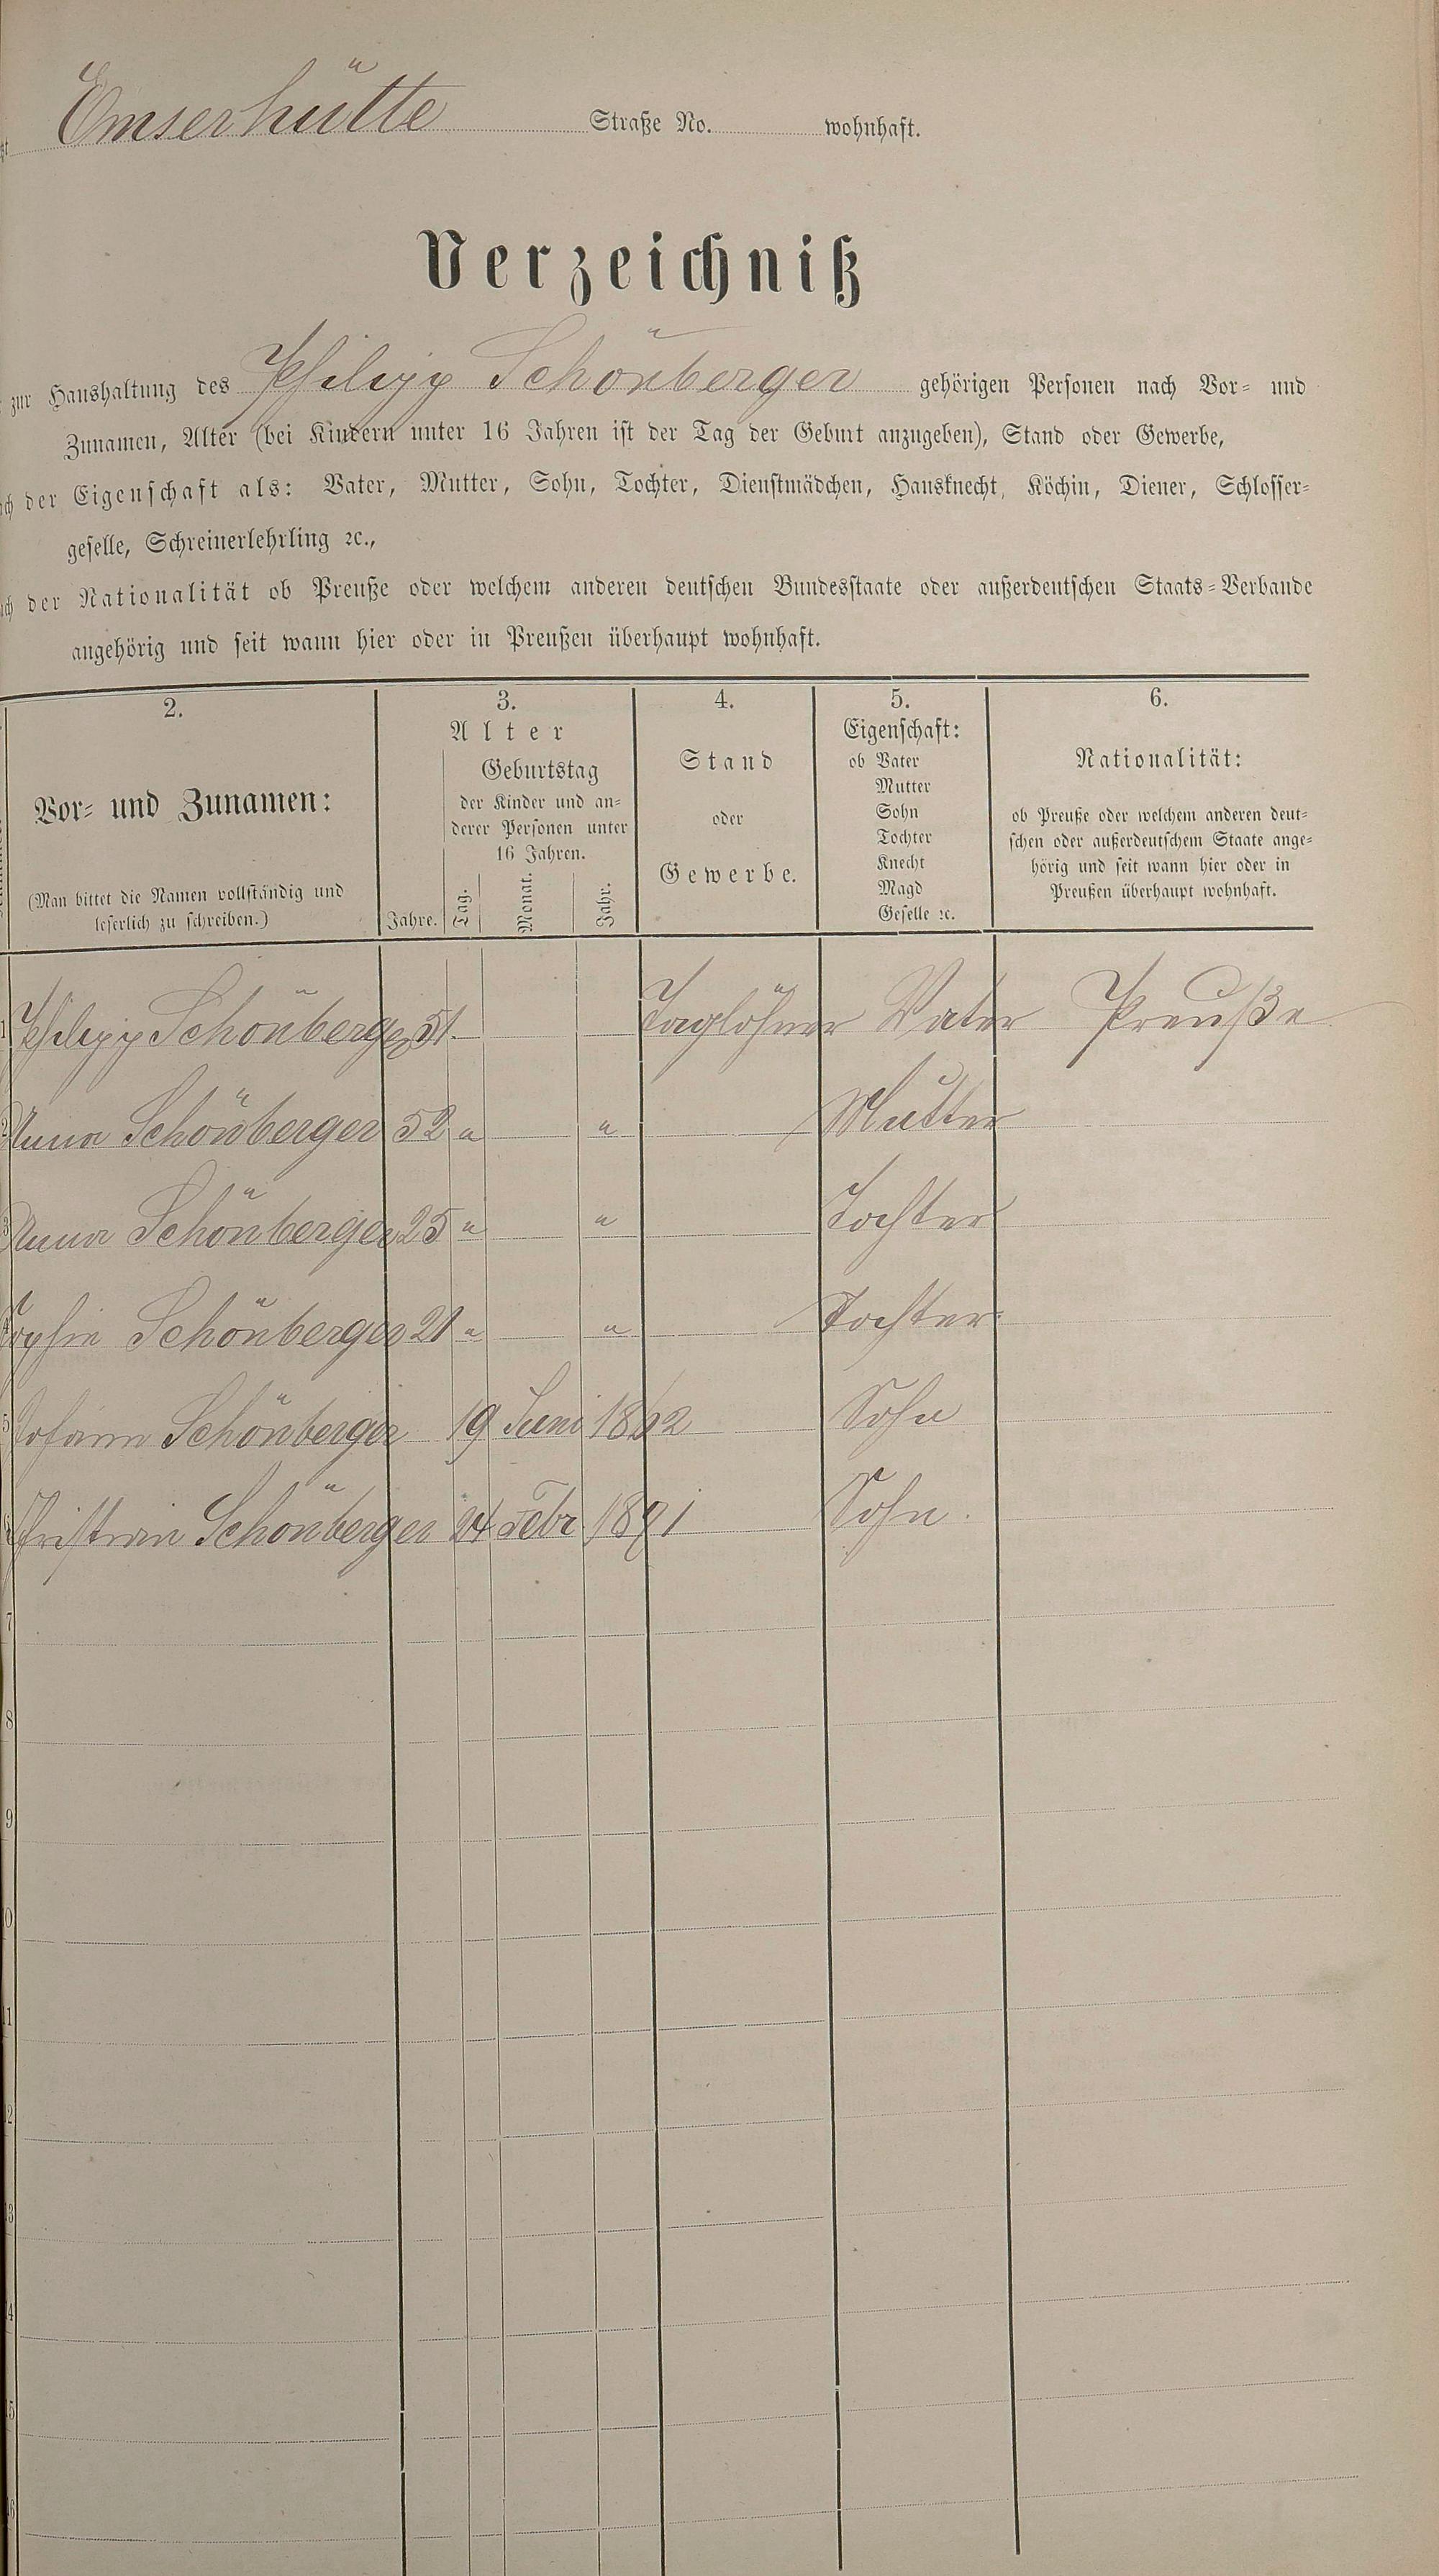 Emserhütte Straße No. wohnhaft.
Verzeichniß
zur Haushaltung des Philipp Schönberger gehörigen Personen nach Vor- und
Zunamen, Alter (bei Kindern unter 16 Jahren ist der Tag der Geburt anzugeben), Stand oder Gewerbe,
der Eigenschaft als: Vater, Mutter, Sohn, Tochter, Dienstmädchen, Hausknecht, Köchin, Diener, Schlosser-
geselle, Schreinerlehrling ꝛc.,
der Nationalität ob Preuße oder welchem anderen deutschen Bundesstaate oder außerdeutschen Staats-Verbande
angehörig und seit wann hier oder in Preußen überhaupt wohnhaft.
2.
Vor- und Zunamen:
(Man bittet die Namen vollständig und
leserlich zu schreiben.)
3.
Alter
Geburtstag
der Kinder und an-
derer Personen unter
16 Jahren.
Jahre. Tag. Monat. Jahr.
4.
Stand
oder
Gewerbe.
5.
Eigenschaft:
ob Vater
Mutter
Sohn
Tochter
Knecht
Magd
Geselle ꝛc.
6.
Nationalität:
ob Preuße oder welchem anderen deut-
schen oder außerdeutschem Staate ange-
hörig und seit wann hier oder in
Preußen überhaupt wohnhaft.
1 Philipp Schönberger 51. Taglöhner Vater Preuße
2 Anna Schönberger 52 " " Mutter
3 Anna Schönberger 25 " " Tochter
Sophie Schönberger 21 " " Tochter
5 Johann Schönberger 19 Juni Sohn
Christian Schönberger 24 Febr 1891 Sohn.
7
8
9
0
1
2
3
4
5
6